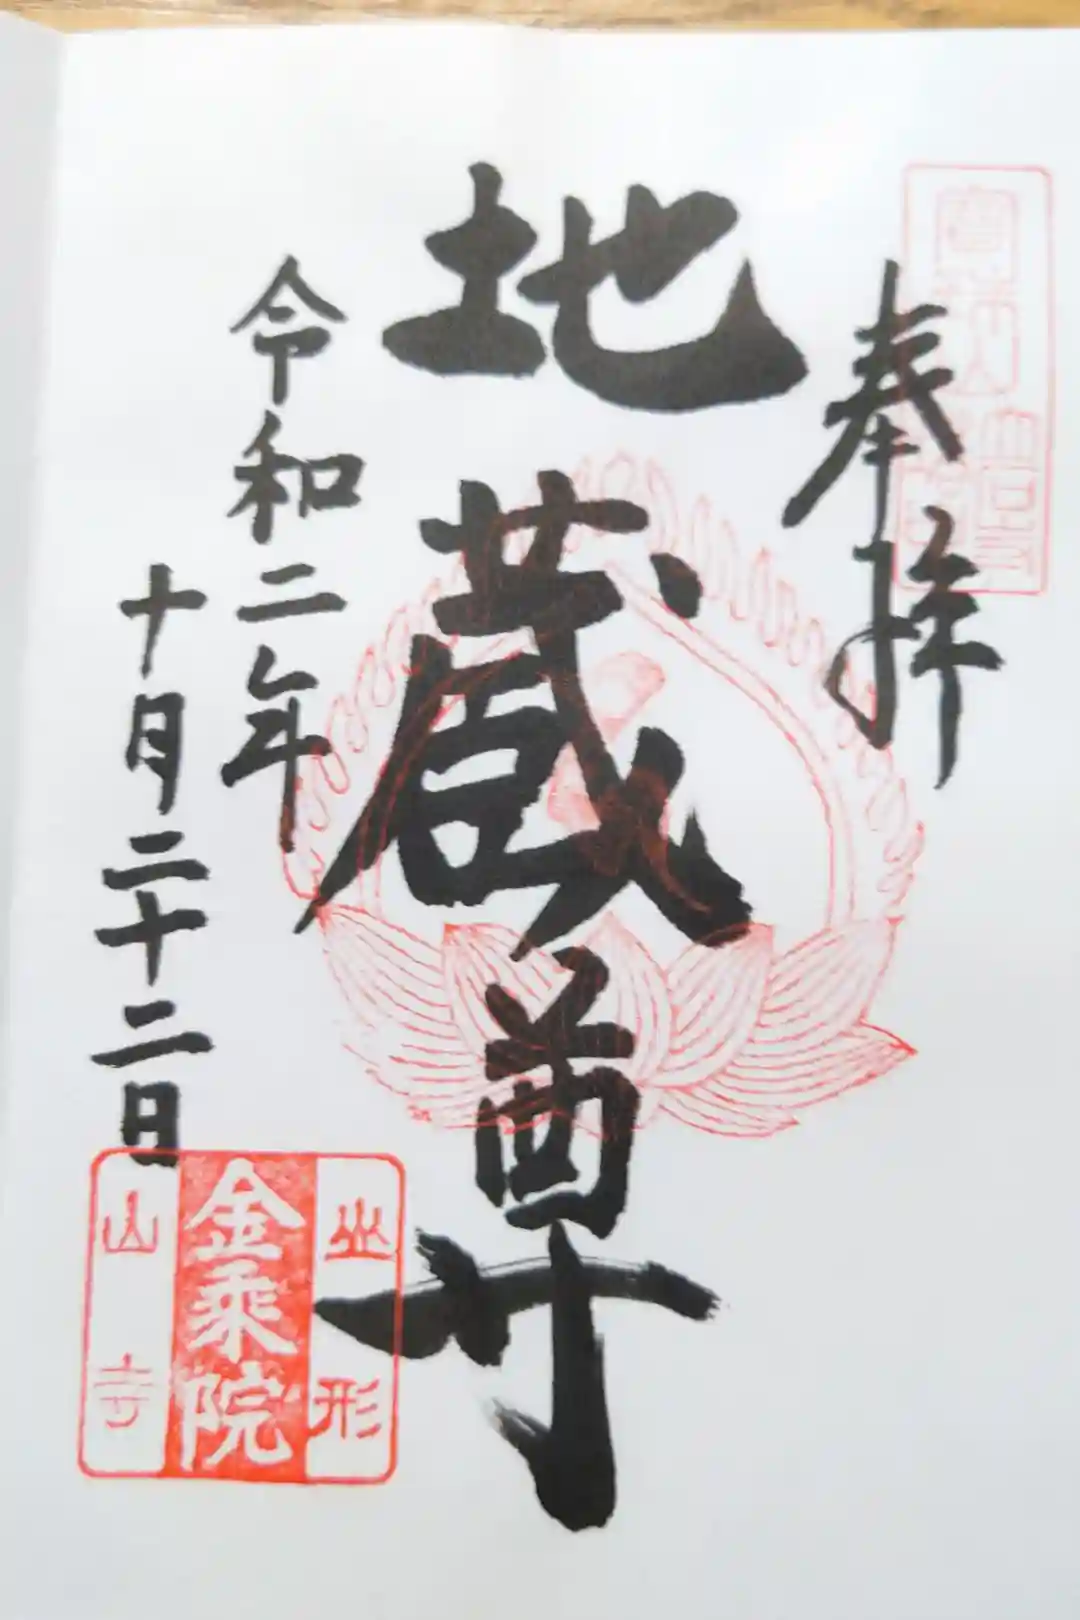 奉拝
地蔵尊
令和二年
十月二十二日
山形
金乘院
山寺